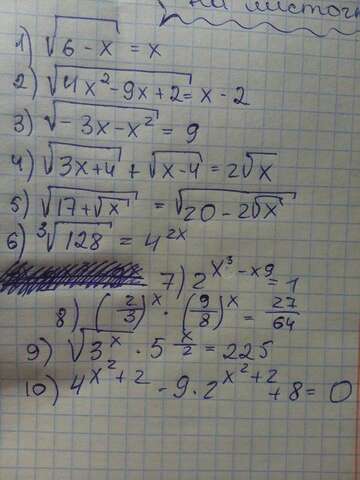 на листоч
1) √(6 - x) = x
2) √(4x² - 9x + 2) = x - 2
3) √(-3x - x²) = 9
4) √(3x + 4) + √(x - 4) = 2√x
5) √(17 + √x) = √(20 - 2√x)
6) ³√128 = 4^(2x)
7) 2^(x³ - x9) = 1
8) (2/3)^x · (9/8)^x = 27/64
9) √(3^x) · 5^(x/2) = 225
10) 4^(x² + 2) - 9 · 2^(x² + 2) + 8 = 0